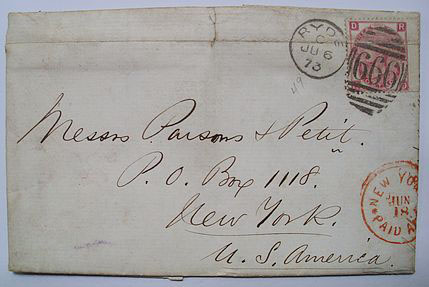 RYDE
C
JU 6
73
D R
666
Messrs Parsons & Petit.
P. O. Box 1118.
New York.
U. S. America.
NEW YO
JUN
18
PAID A